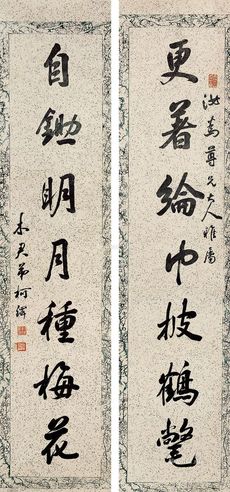 尊兄大人雅屬
更著綸巾披鶴氅
自鋤明月種梅花
弟柯